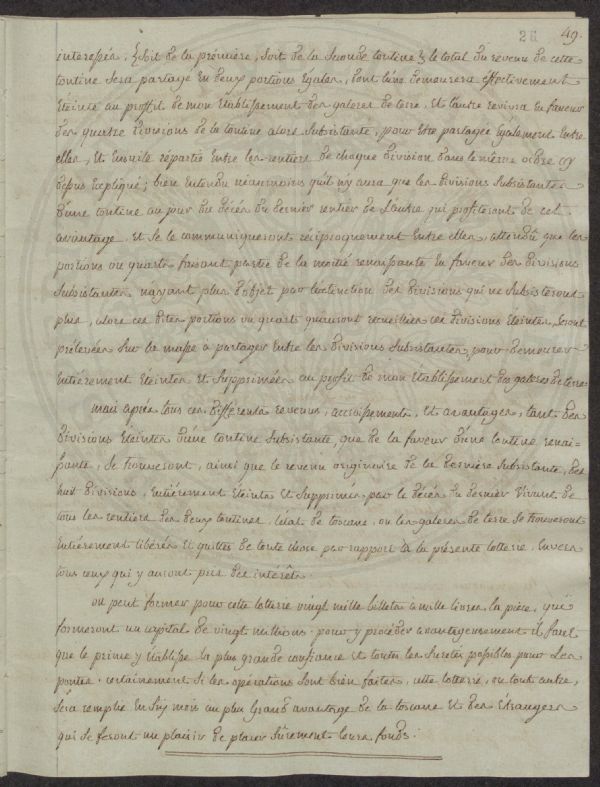 26 49.
interessés, soit de la première, soit de la seconde tontine le total du revenu de cette
tontine sera partagé en deux portions égales, dont l'une demeurera effectivement
éteinte au proffit de mon établissement des galeres de terre, et l'autre revivra en faveur
des quatre divisions de la tontine alors subsistante, pour être partagée également entre
elles, et ensuite répartie entre les rentiers de chaque division dans le même ordre cy
dessus expliqué; bien entendu néanmoins qu'il n'y aura que les divisions subsistantes
d'une tontine au jour du décès du dernier rentier de l'autre qui profiteront de cet
avantage, et se le communiqueront réciproquement entre elles, attendu que les
portions ou quarts faisant partie de la moitié renaissante en faveur des divisions
subsistantes n'ayant plus d'objet par l'extinction des divisions qui ne subsisteront
plus, alors ces dites portions ou quarts qu'auront recueillies ces divisions éteintes, seront
prélevées sur la masse à partager entre les divisions subsistantes, pour demeurer
entiérement éteintes et supprimées au profit de mon établissement des galeres de terre.
mais après tous ces différents revenus, accroissements, et avantages, tant des
divisions éteintes d'une tontine subsistante, que de la faveur d'une tontine renais=
sante, se trouveront, ainsi que le revenu originaire de la derniére subsistante, des
huit divisions, entiérement éteints et supprimés par le décès du dernier vivant de
tous les rentiers des deux tontines, l'état de toscane, ou les galeres de terre se trouveront
entiérement libérés et quittes de toute chose par rapport à la présente lotterie, envers
tous ceux qui y auront pris des intérêts.
on peut former pour cette lotterie vingt mille billets à mille livres la pièce, qui
formeront un capital de vingt millions. pour y procéder avantageusement il faut
que le prince y établisse la plus grande confiance et toutes les suretés possibles pour les
pontes. certainement si les opérations sont bien faites, cette lotterie, ou tout autre,
sera remplie en six mois au plus grand avantage de la toscane et des étrangers
qui se feront un plaisir de placer sûrement leurs fonds.